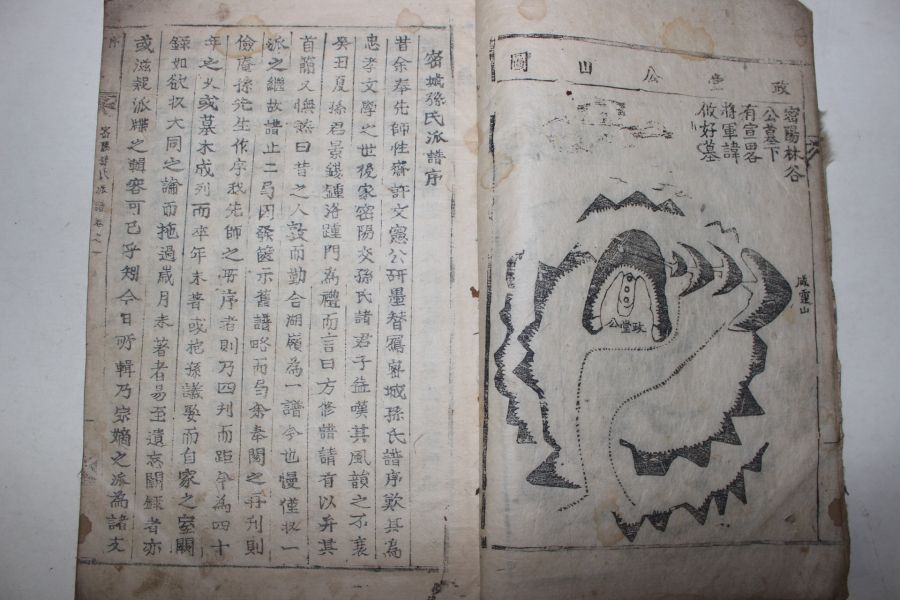 政堂公山圖
密陽林谷
公墓下
有宣畧
將軍諱
攸好墓
咸靈山
政堂公
密城孫氏派譜序
昔余奉先師性齋許文憲公研墨替寫密城孫氏譜序歎其爲
忠孝文學之世後家密陽交孫氏諸君子益嘆其風韻之不衰
癸丑夏孫君景錢鍾洛踵門爲禮而言曰方修譜請有以弁其
首簡又憮然曰昔之人敦而勤合湖嶺爲一譜今也慢僅收一
派之繼故譜止二局因發篋示舊譜略而局余奉閱之再刊則
儉庵孫先生作序我先師之所序者則乃四刊而距今爲四十
年之久或墓木成列而卒年未著或抱孫議娶而自家之室闕
錄如欲収大同之論而拖過歲月未著者易至遺忘闕錄者亦
或滋疑派牒之輯容可已乎矧今日所輯乃宗嫡之派爲諸支